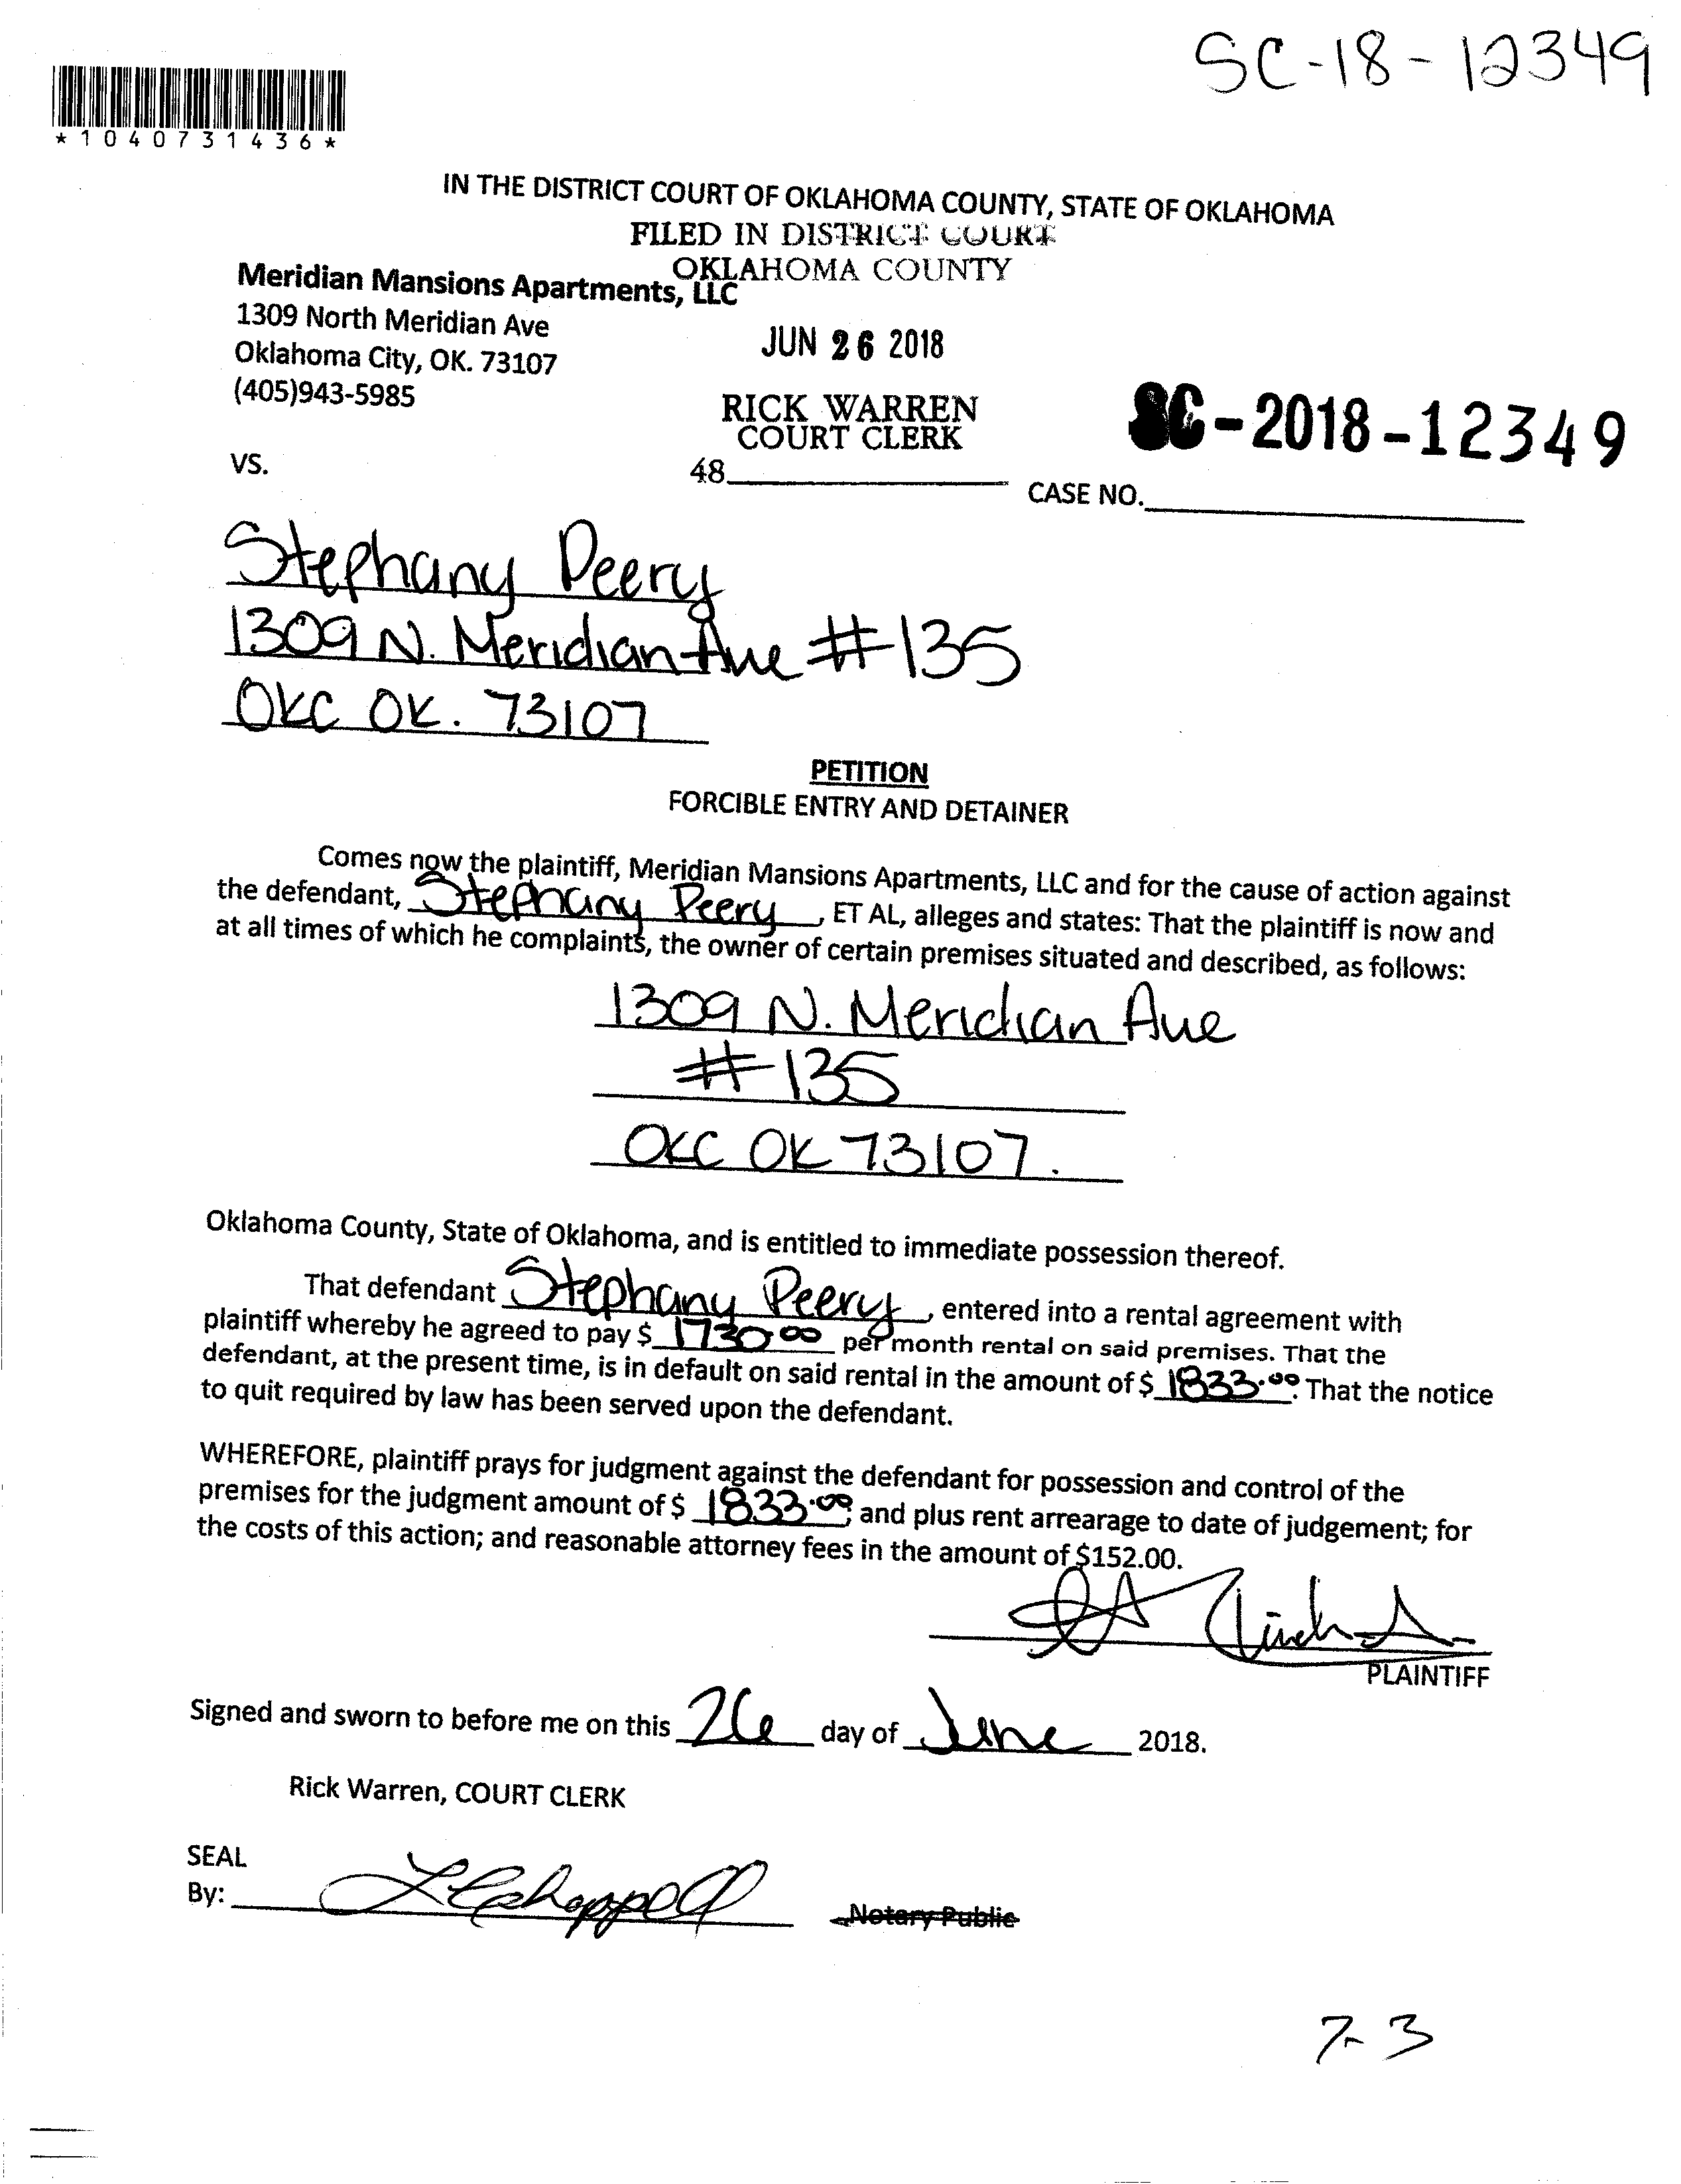 SC-18-12349
*1040731436*
IN THE DISTRICT COURT OF OKLAHOMA COUNTY, STATE OF OKLAHOMA
FILED IN DISTRICT COURT
OKLAHOMA COUNTY
Meridian Mansions Apartments, LLC
1309 North Meridian Ave
Oklahoma City, OK. 73107
(405)943-5985
JUN 26 2018
RICK WARREN
COURT CLERK
SC-2018-12349
VS.
48
CASE NO.
Stephany Peery
1309 N. Meridian Ave #135
OKC OK. 73107
PETITION
FORCIBLE ENTRY AND DETAINER
Comes now the plaintiff, Meridian Mansions Apartments, LLC and for the cause of action against
the defendant, Stephany Peery, ET AL, alleges and states: That the plaintiff is now and
at all times of which he complaints, the owner of certain premises situated and described, as follows:
1309 N. Meridian Ave
#135
OKC OK 73107.
Oklahoma County, State of Oklahoma, and is entitled to immediate possession thereof.
That defendant Stephany Peery, entered into a rental agreement with
plaintiff whereby he agreed to pay $ 1730.00 per month rental on said premises. That the
defendant, at the present time, is in default on said rental in the amount of $ 1833.00. That the notice
to quit required by law has been served upon the defendant.
WHEREFORE, plaintiff prays for judgment against the defendant for possession and control of the
premises for the judgment amount of $ 1833.00; and plus rent arrearage to date of judgement; for
the costs of this action; and reasonable attorney fees in the amount of $152.00.
PLAINTIFF
Signed and sworn to before me on this 26 day of June 2018.
Rick Warren, COURT CLERK
SEAL
By:
Notary Public
7-3